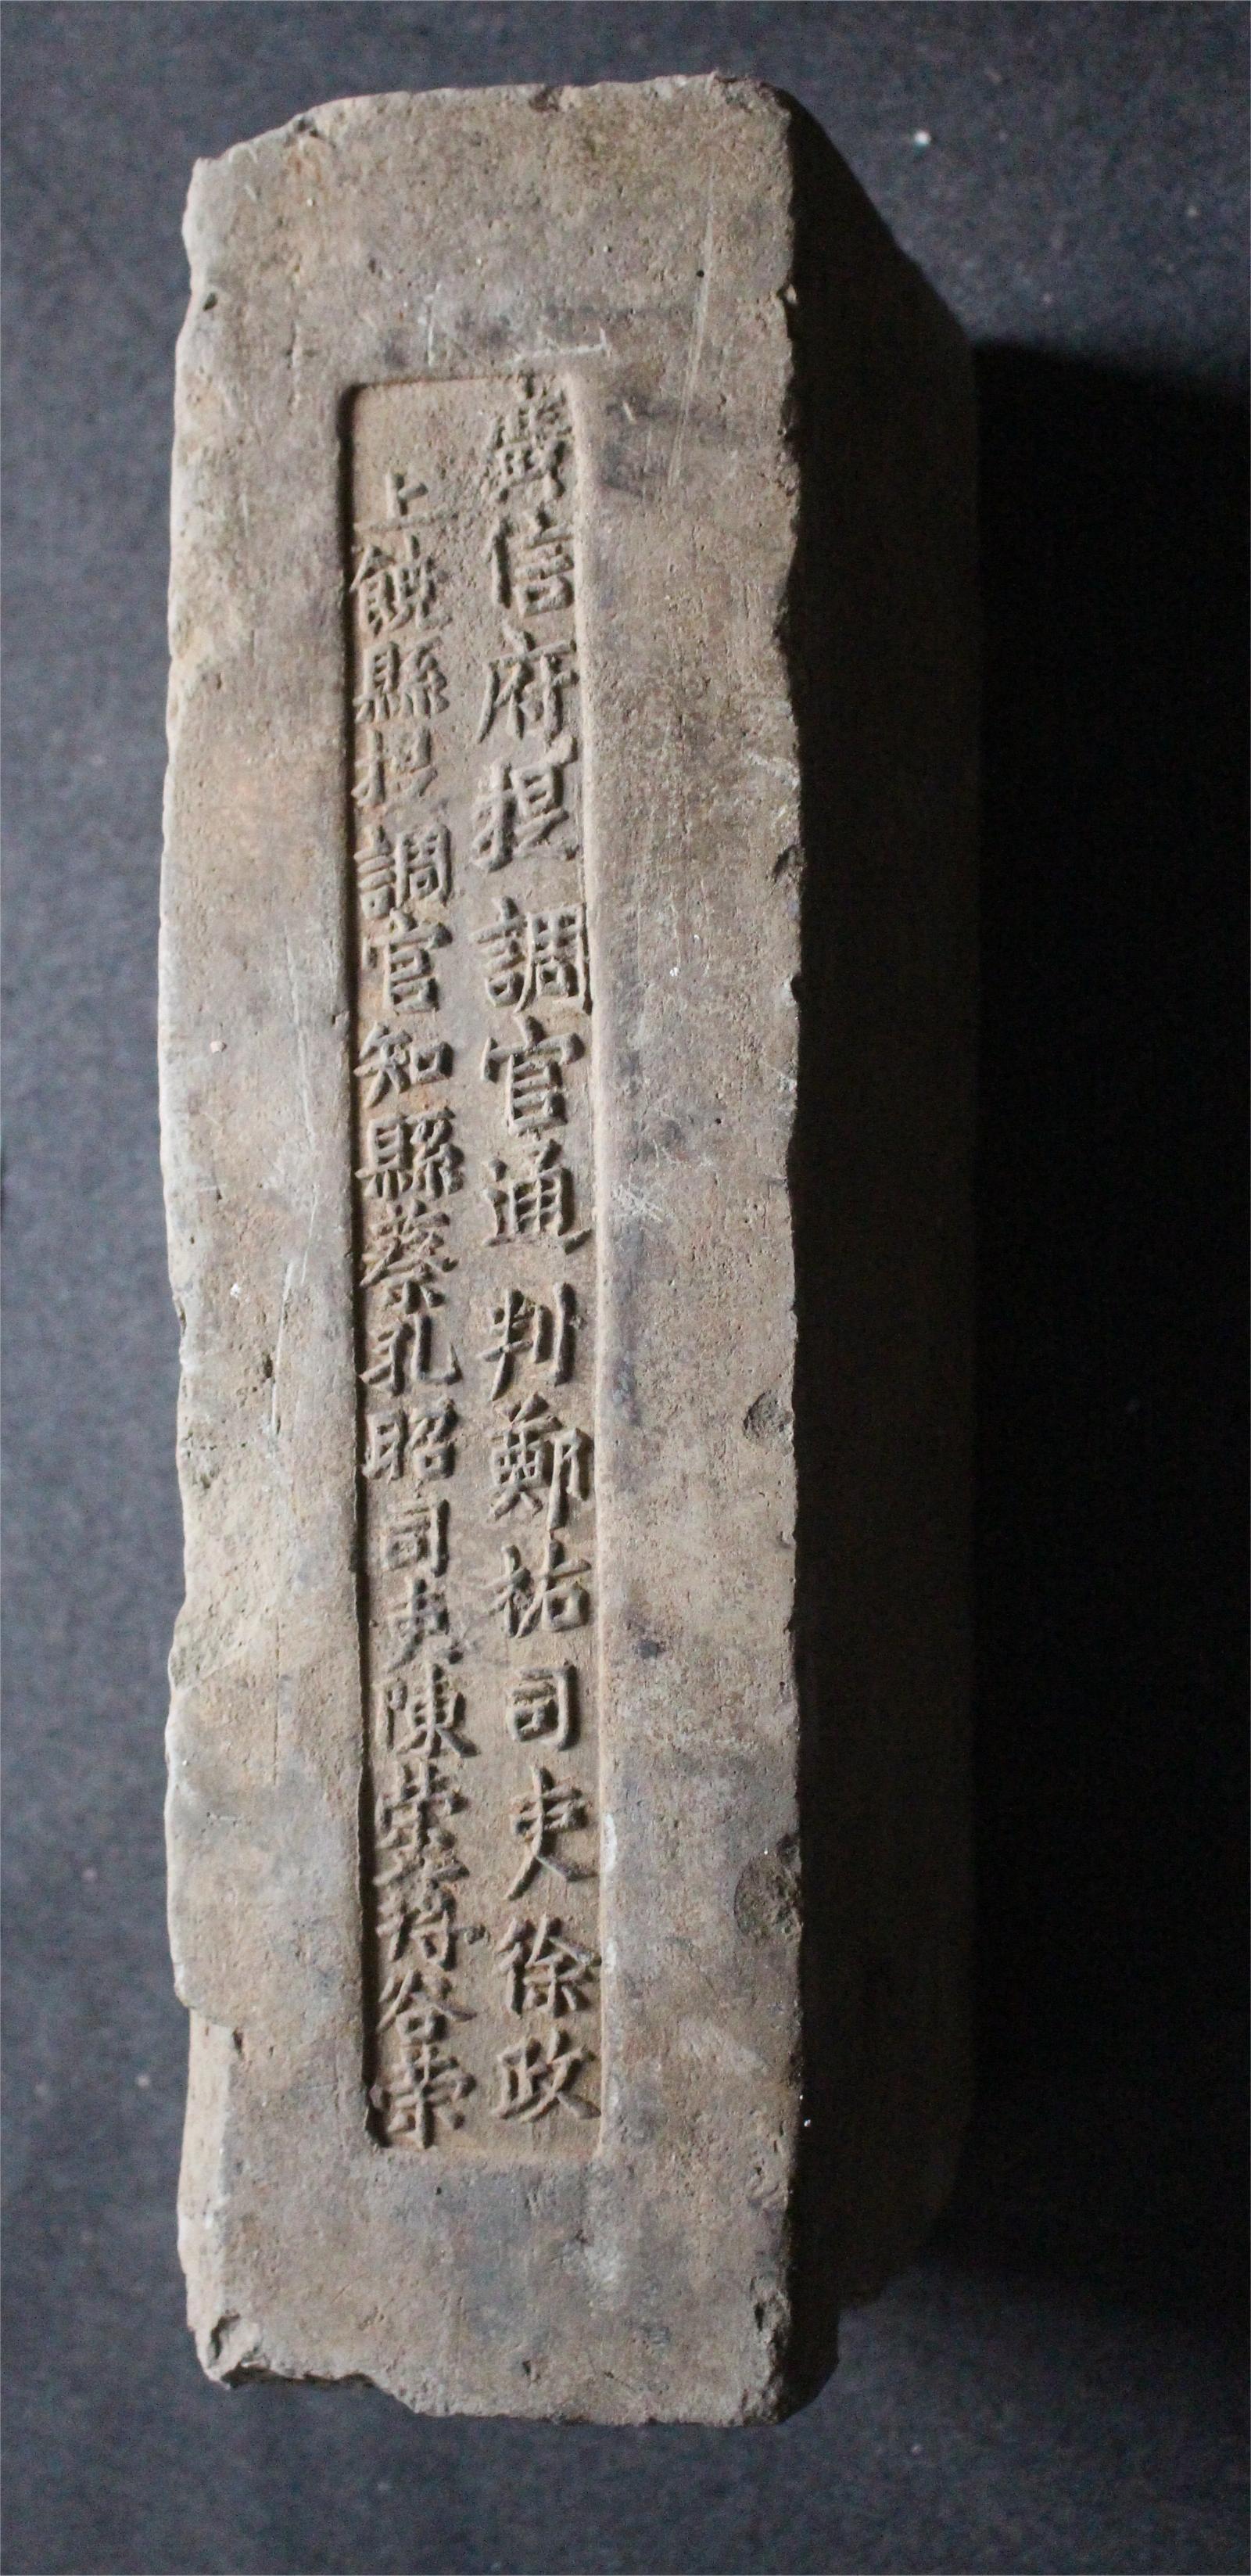 廣信府提調官通判鄭祐司吏徐政
上饒縣提調官知縣蔡孔昭司吏陳谷荣